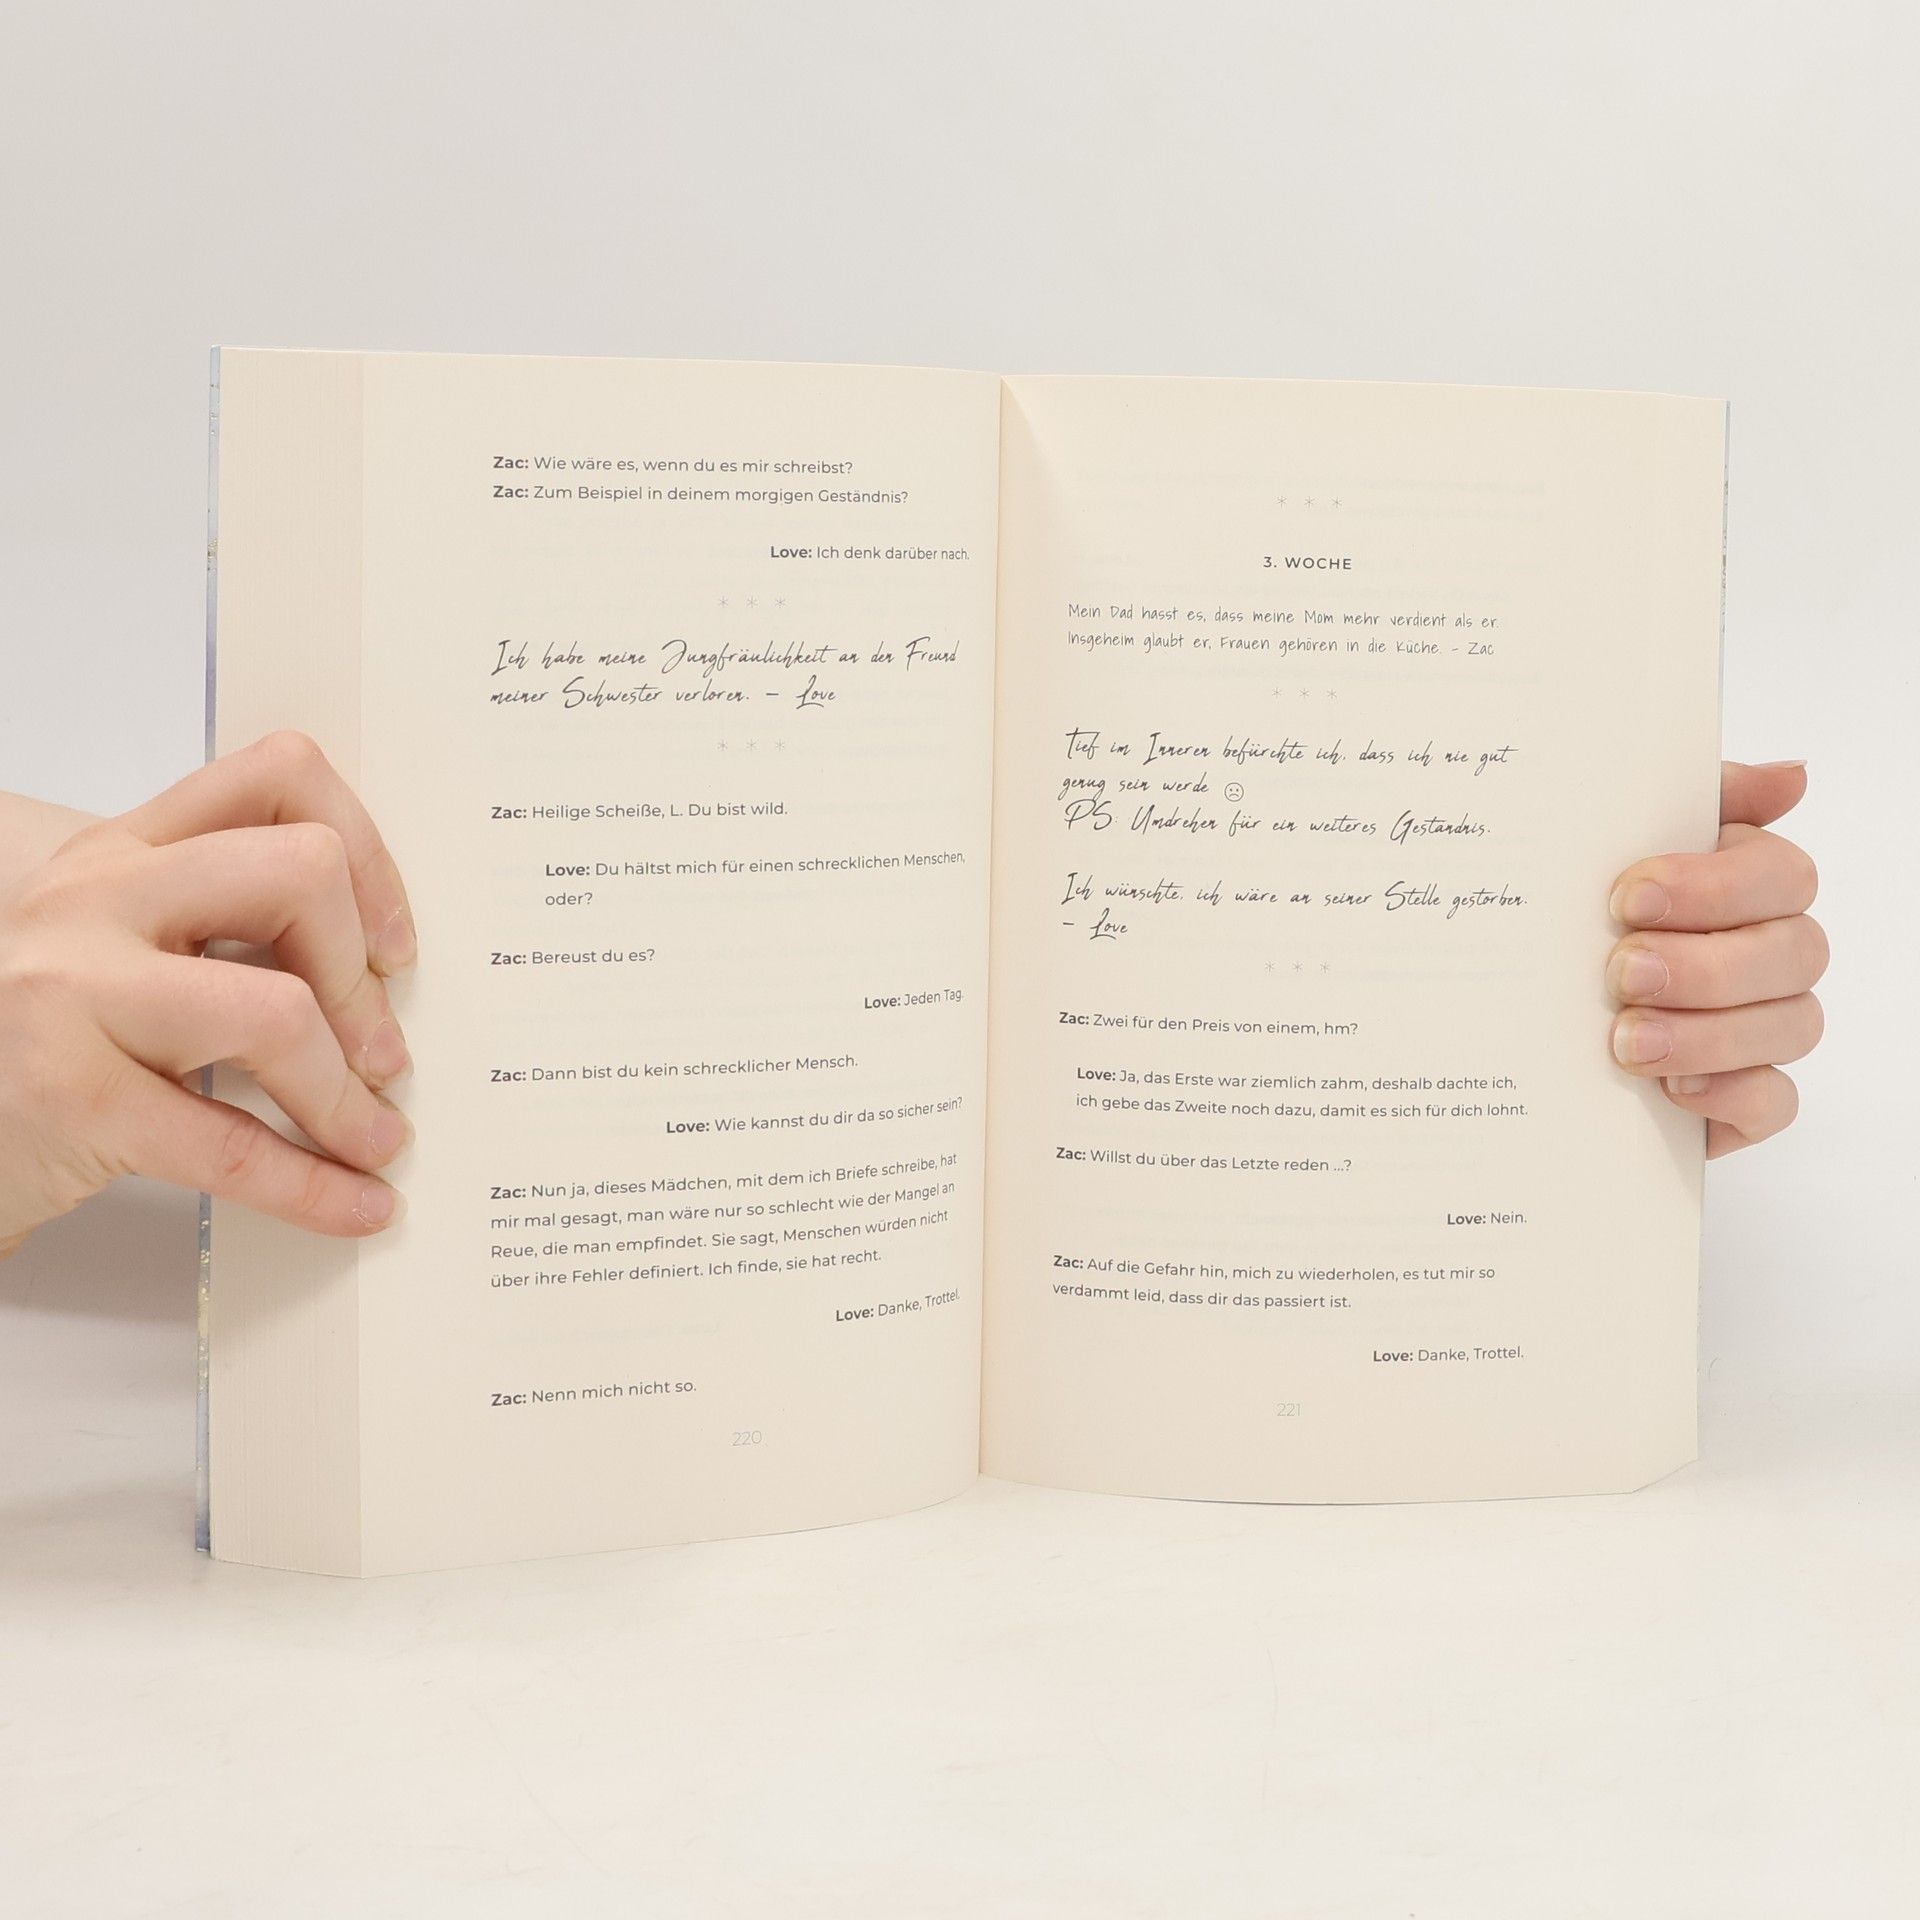 Zac: Wie wäre es, wenn du es mir schreibst?
Zac: Zum Beispiel in deinem morgigen Geständnis?
Love: Ich denk darüber nach.
* * *
Ich habe meine Jungfräulichkeit an den Freund
meiner Schwester verloren. – Love
* * *
Zac: Heilige Scheiße, L. Du bist wild.
Love: Du hältst mich für einen schrecklichen Menschen,
oder?
Zac: Bereust du es?
Love: Jeden Tag.
Zac: Dann bist du kein schrecklicher Mensch.
Love: Wie kannst du dir da so sicher sein?
Zac: Nun ja, dieses Mädchen, mit dem ich Briefe schreibe, hat
mir mal gesagt, man wäre nur so schlecht wie der Mangel an
Reue, die man empfindet. Sie sagt, Menschen würden nicht
über ihre Fehler definiert. Ich finde, sie hat recht.
Love: Danke, Trottel.
Zac: Nenn mich nicht so.
220
* * *
3. WOCHE
Mein Dad hasst es, dass meine Mom mehr verdient als er.
Insgeheim glaubt er, Frauen gehören in die Küche. – Zac
* * *
Tief im Inneren befürchte ich, dass ich nie gut
genug sein werde ☹
PS: Umdrehen für ein weiteres Geständnis.
Ich wünschte, ich wäre an seiner Stelle gestorben.
– Love
* * *
Zac: Zwei für den Preis von einem, hm?
Love: Ja, das Erste war ziemlich zahm, deshalb dachte ich,
ich gebe das Zweite noch dazu, damit es sich für dich lohnt.
Zac: Willst du über das Letzte reden ...?
Love: Nein.
Zac: Auf die Gefahr hin, mich zu wiederholen, es tut mir so
verdammt leid, dass dir das passiert ist.
Love: Danke, Trottel.
221